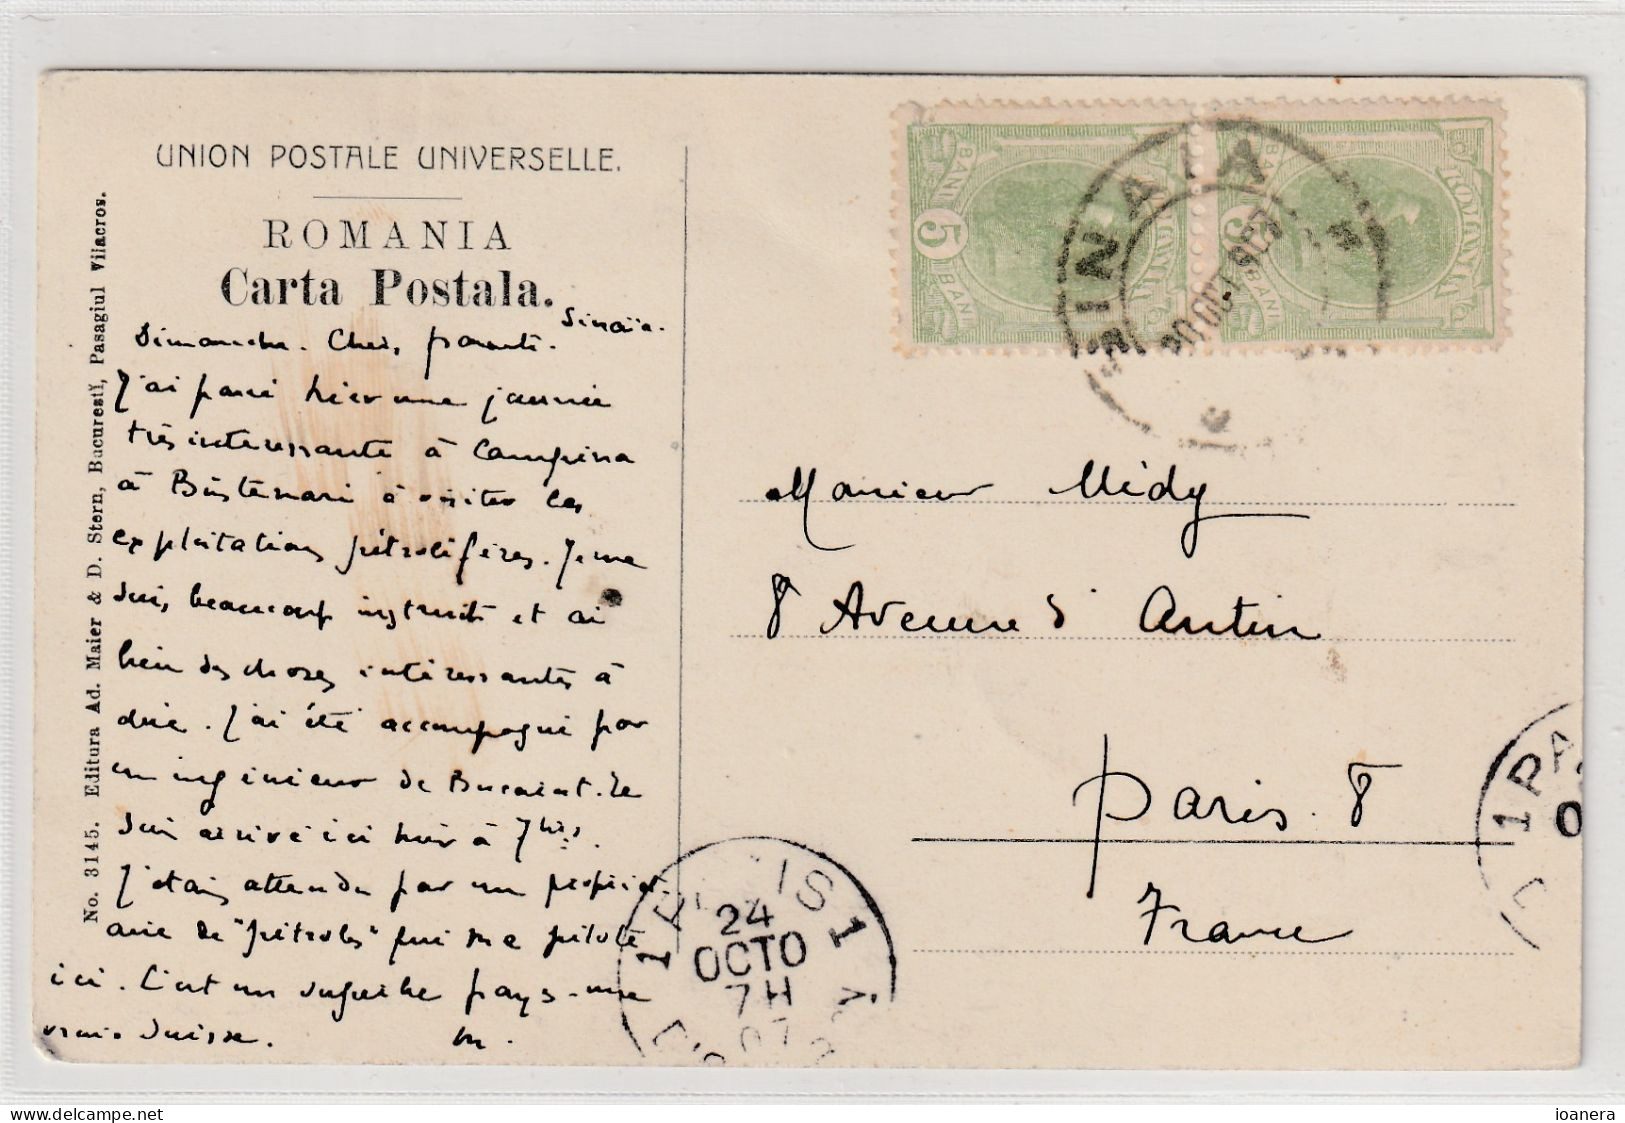 UNION POSTALE UNIVERSELLE.
ROMANIA
Carta Postala.
No. 3145. Editura Ad. Maier & D. Stern, Bucuresti, Pasagiul Villacros.
Sinaïa.
Dimanche. Chers parents.
J'ai passé hier une journée
très intéressante à Campina
à Bustenari à visiter les
exploitations pétrolifères. Je me
suis beaucoup instruit et ai
bien des choses intéressantes à
dire. J'ai été accompagné par
un ingénieur de Bucarest. Je
suis arrivé ici hier à 7hrs.
J'étais attendu par un propriét-
aire de "pétroles" qui me pilote
ici. C'est un superbe pays - une
vraie Suisse.
M.
ROMANIA
5 BANI
BANI
ROMANIA
5 BANI
BANI
SINAIA
Monsieur Midy
8 Avenue d'Antin
Paris. 8
France
24
OCTO
7H
07
1 PA
ioanera
© www.delcampe.net